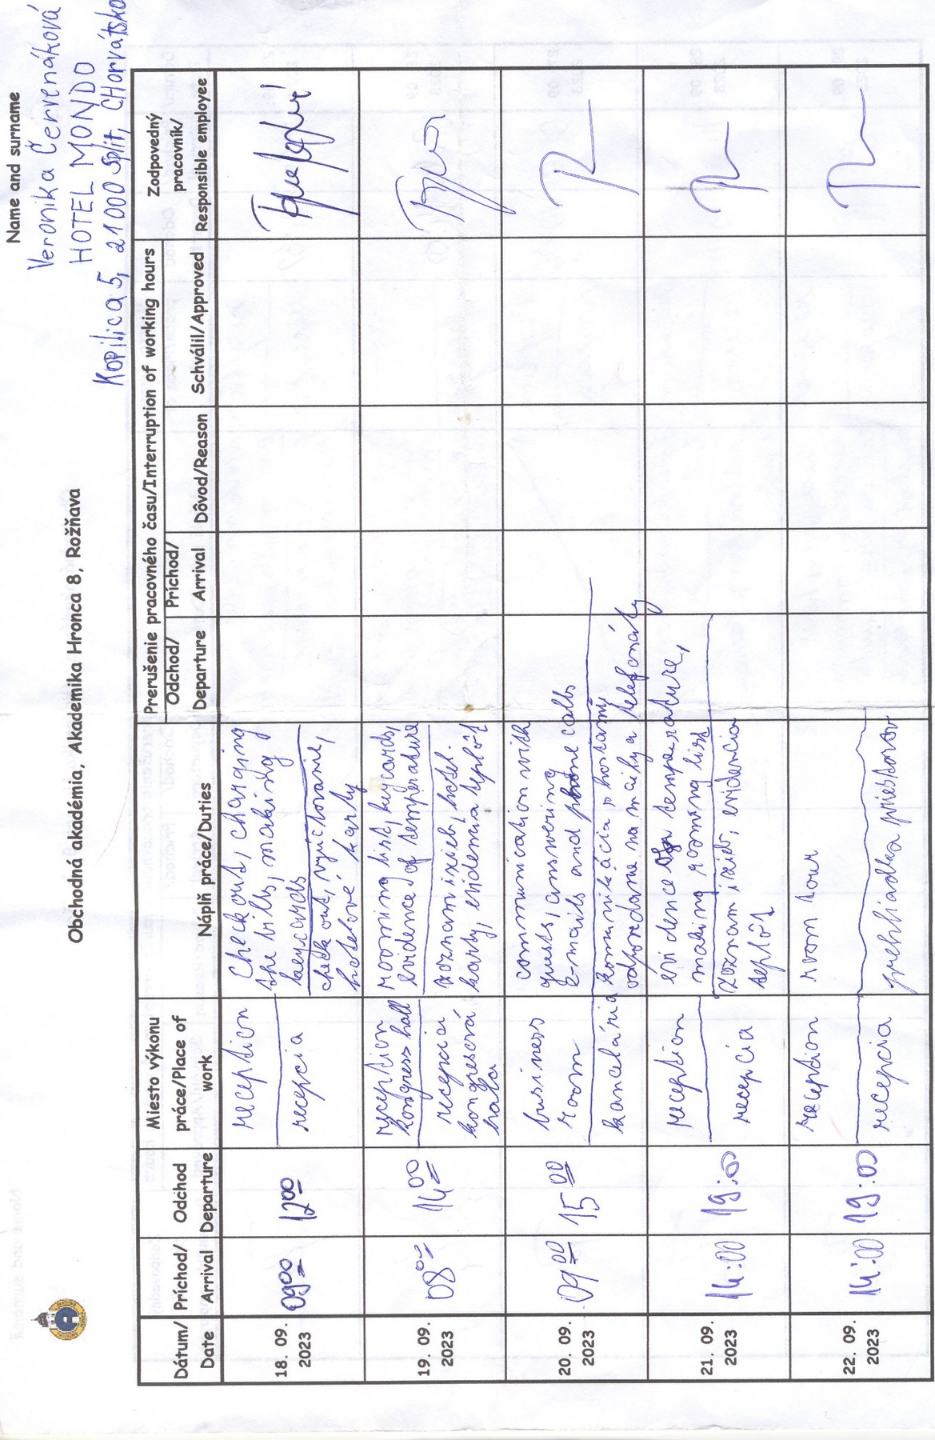 Obchodná akadémia, Akademika Hronca 8, Rožňava
Name and surname
Veronika Červenáková
HOTEL MONDO
Kopilica 5, 21000 Split, CHorvátsko
Dátum/
Date
Príchod/
Arrival
Odchod
Departure
Miesto výkonu
práce/Place of
work
Náplň práce/Duties
Prerušenie pracovného času/Interruption of working hours
Odchod/
Departure
Príchod/
Arrival
Dôvod/Reason
Schválil/Approved
Zodpovedný
pracovník/
Responsible employee
18. 09.
2023
0900
1200
reception
recepcia
Check out, charging
the bills, making
keycards
check out, vyúčtovanie,
hotelové karty
19. 09.
2023
0800
1400
reception
kongress hall
recepcia
kongresová
hala
rooming list, keycards,
evidence of temperature
zoznam izieb, hotel.
karty, evidencia teplôt
20. 09.
2023
0900
1500
business
room
kancelária
communication with
guests, answering
E-mails and phone calls
komunikácia s hosťami,
odpovedanie na maily a telefonáty
21. 09.
2023
14:00
19:00
reception
recepcia
evidence of temperature,
making rooming list
zoznam izieb, evidencia
teplôt
22. 09.
2023
14:00
19:00
reception
recepcia
room tour
prehliadka priestorov